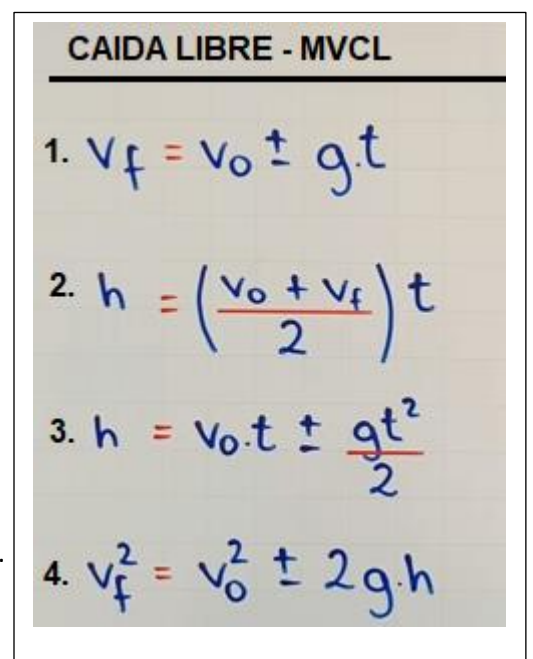 CAIDA LIBRE - MVCL
1. Vf = Vo ± g.t
2. h = (Vo + Vf / 2) t
3. h = Vo.t ± gt² / 2
4. Vf² = Vo² ± 2g.h